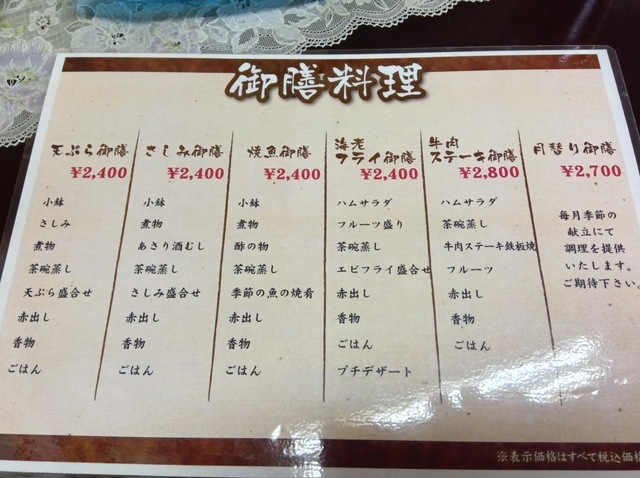 御膳料理
天ぷら御膳
¥2,400
小鉢
さしみ
煮物
茶碗蒸し
天ぷら盛合せ
赤出し
香物
ごはん
さしみ御膳
¥2,400
小鉢
煮物
あさり酒むし
茶碗蒸し
さしみ盛合せ
赤出し
香物
ごはん
焼魚御膳
¥2,400
小鉢
煮物
酢の物
茶碗蒸し
季節の魚の焼肴
赤出し
香物
ごはん
海老
フライ御膳
¥2,400
ハムサラダ
フルーツ盛り
茶碗蒸し
エビフライ盛合せ
赤出し
香物
ごはん
プチデザート
牛肉
ステーキ御膳
¥2,800
ハムサラダ
茶碗蒸し
牛肉ステーキ鉄板焼
フルーツ
赤出し
香物
ごはん
月替り御膳
¥2,700
毎月季節の
献立にて
調理を提供
いたします。
ご期待下さい。
※表示価格はすべて税込価格